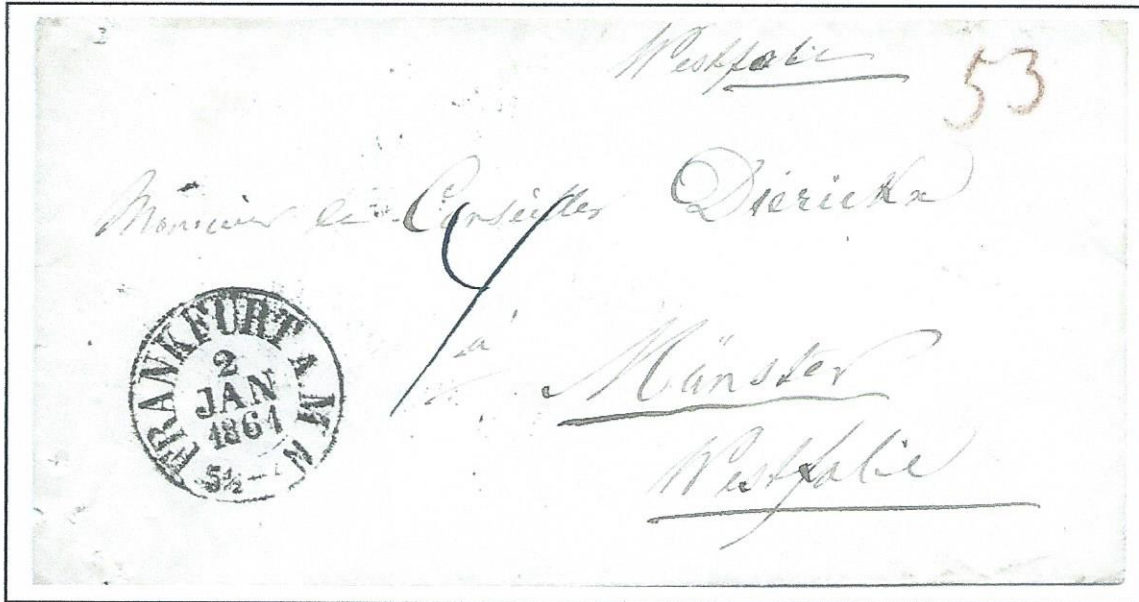 Westfalie
53
Monsieur le Conseiller Diericks
4
à
Münster
Westfalie
FRANKFURT A. M.
2
JAN
1861
5½-